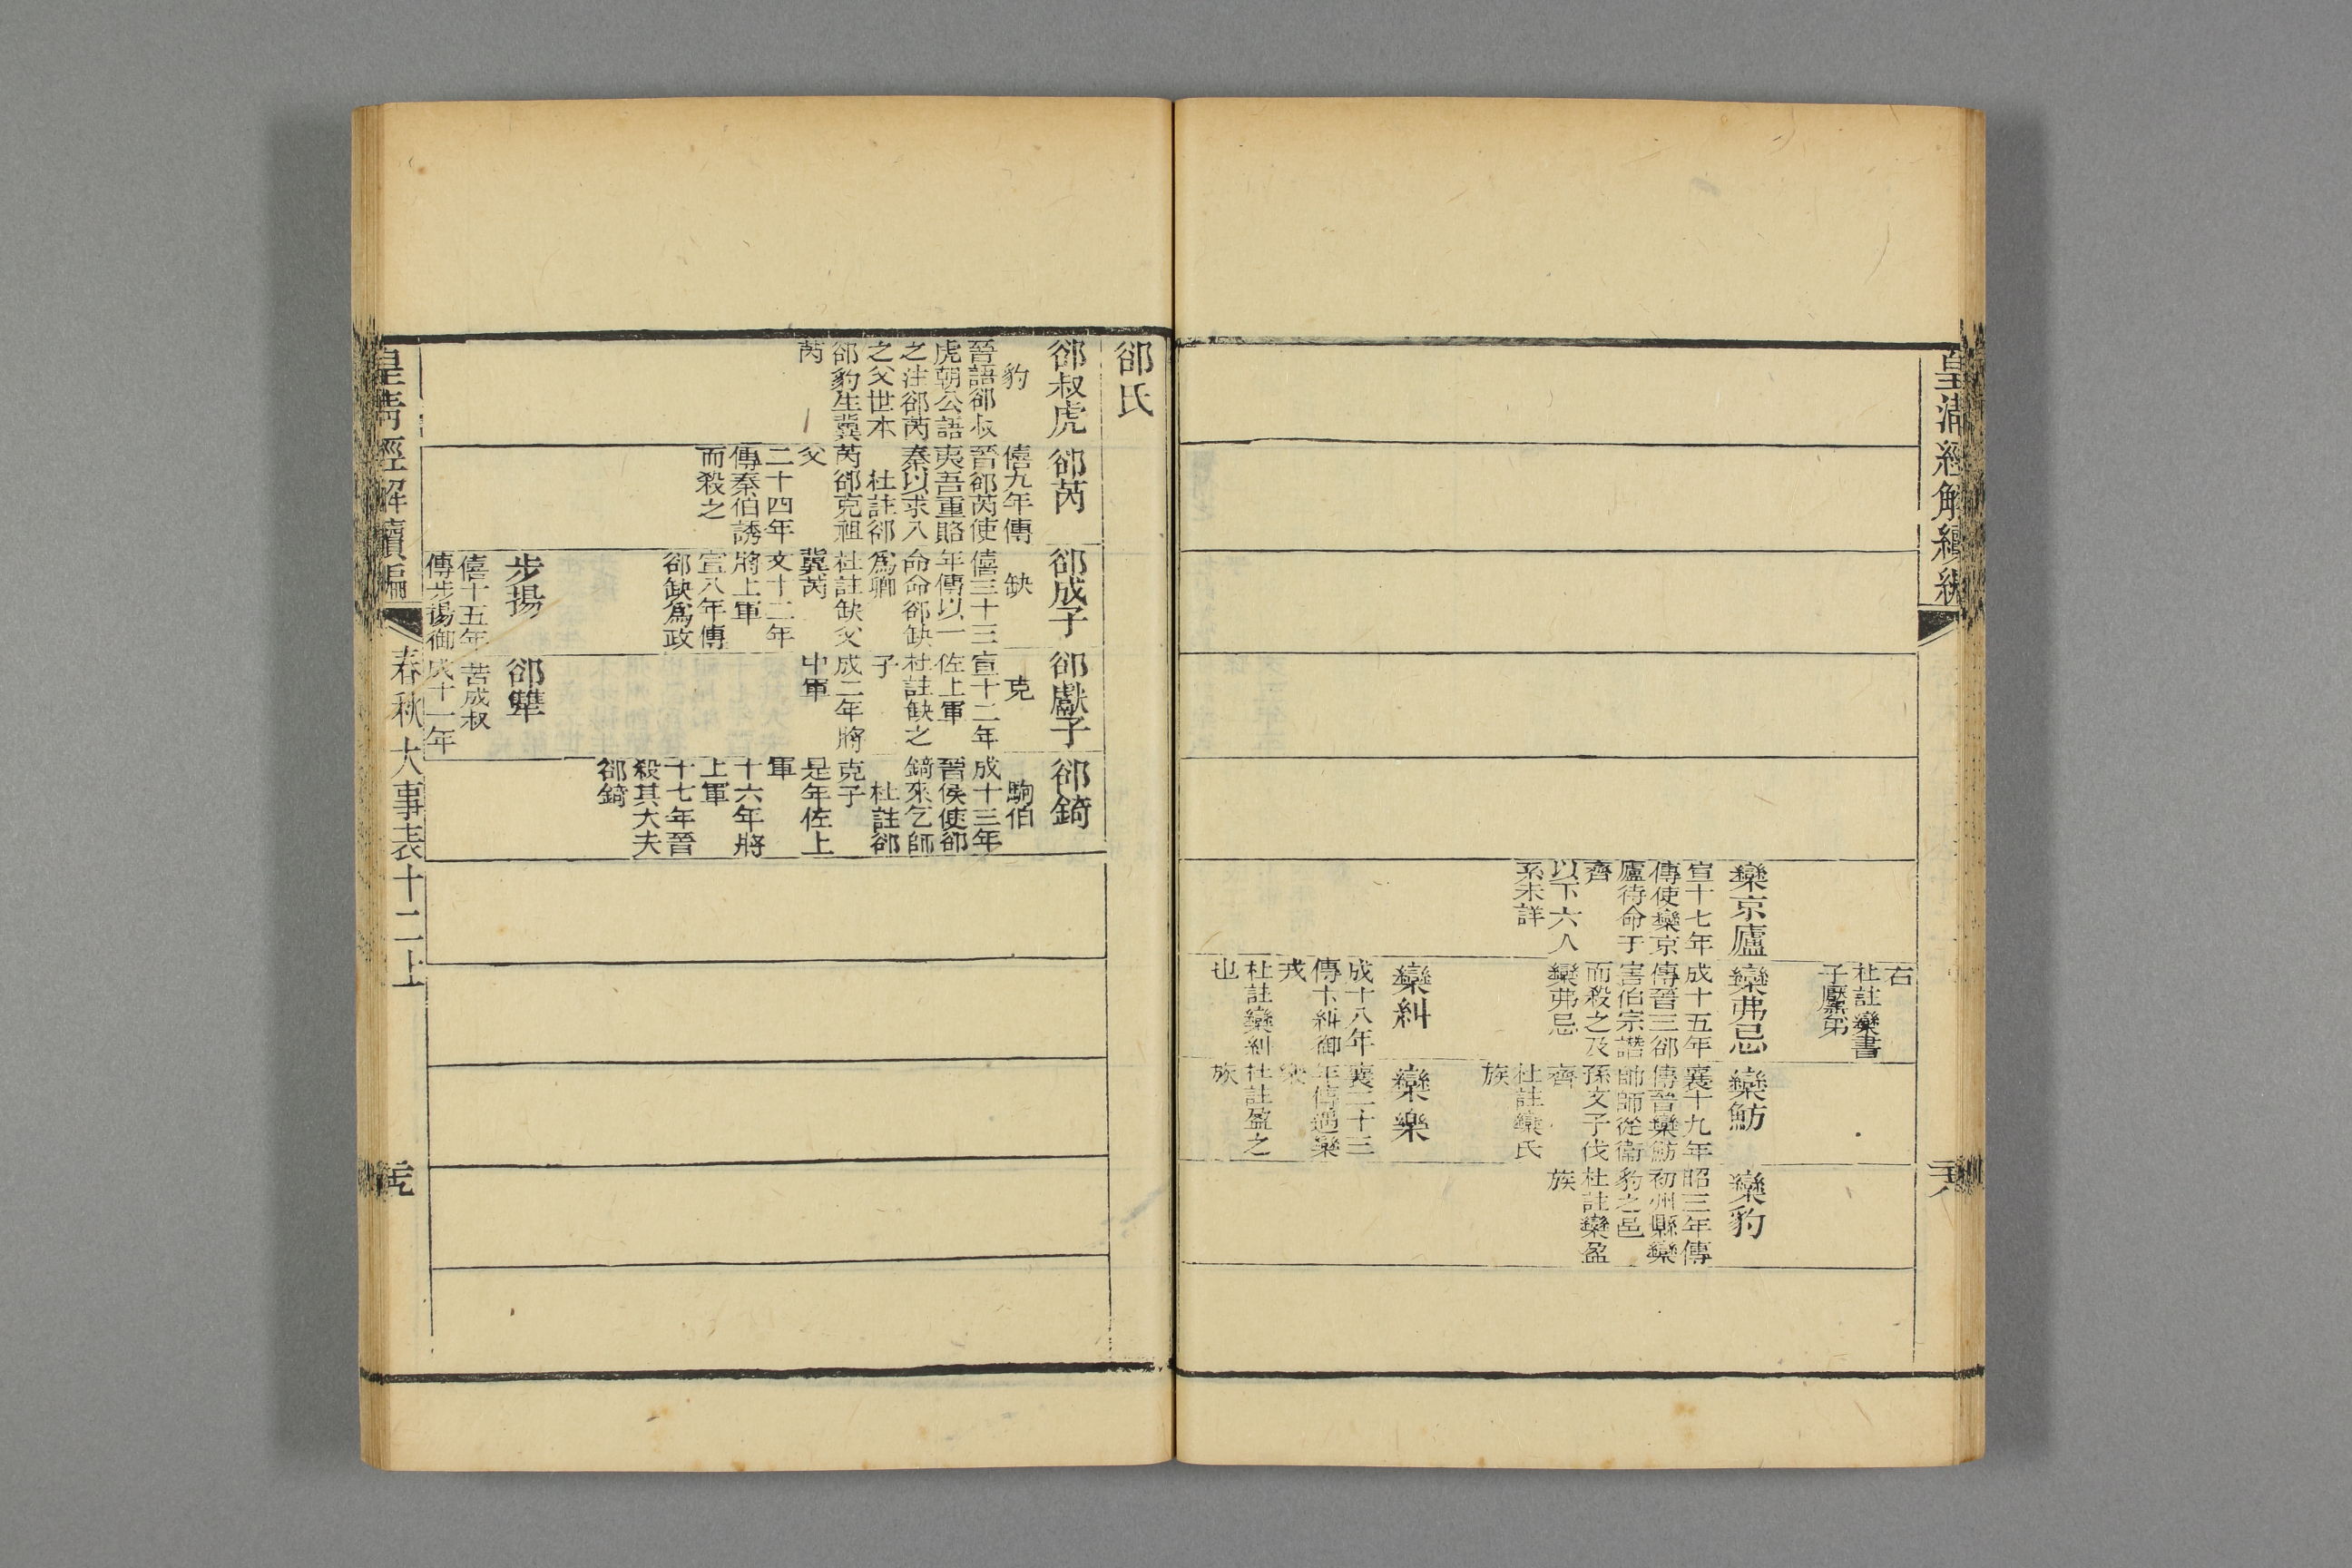 皇清經解續編
右
杜註欒書
子黶弟
欒京廬
宣十七年
傳使欒京
廬待命于
齊
以下六人
系未詳
欒弗忌
成十五年
傳晉三郤
害伯宗譖
而殺之及
欒弗忌
欒魴
襄十九年
傳晉欒魴
帥師從衞
孫文子伐
齊
杜註欒氏
族
欒豹
昭三年傳
初州縣欒
豹之邑
杜註欒盈
族
欒糾
成十八年
傳卞糾御
戎
杜註欒糾
也
欒樂
襄二十三
年傳遇欒
樂
杜註盈之
族
郤氏
郤叔虎
豹
晉語郤叔
虎朝公語
之注郤芮
之父世本
郤豹生冀
芮
郤芮
僖九年傳
晉郤芮使
夷吾重賂
秦以求入
杜註郤
芮郤克祖
父
二十四年
傳秦伯誘
而殺之
郤成子
缺
僖三十三
年傳以一
命命郤缺
爲卿
杜註缺父
冀芮
文十二年
將上軍
宣八年傳
郤缺爲政
郤獻子
克
宣十二年
佐上軍
杜註缺之
子
成二年將
中軍
郤錡
駒伯
成十三年
晉侯使郤
錡來乞師
杜註郤
克子
是年佐上
軍
十六年將
上軍
十七年晉
殺其大夫
郤錡
步揚
僖十五年
傳步揚御
郤犨
苦成叔
成十一年
皇清經解續編
春秋大事表十二上